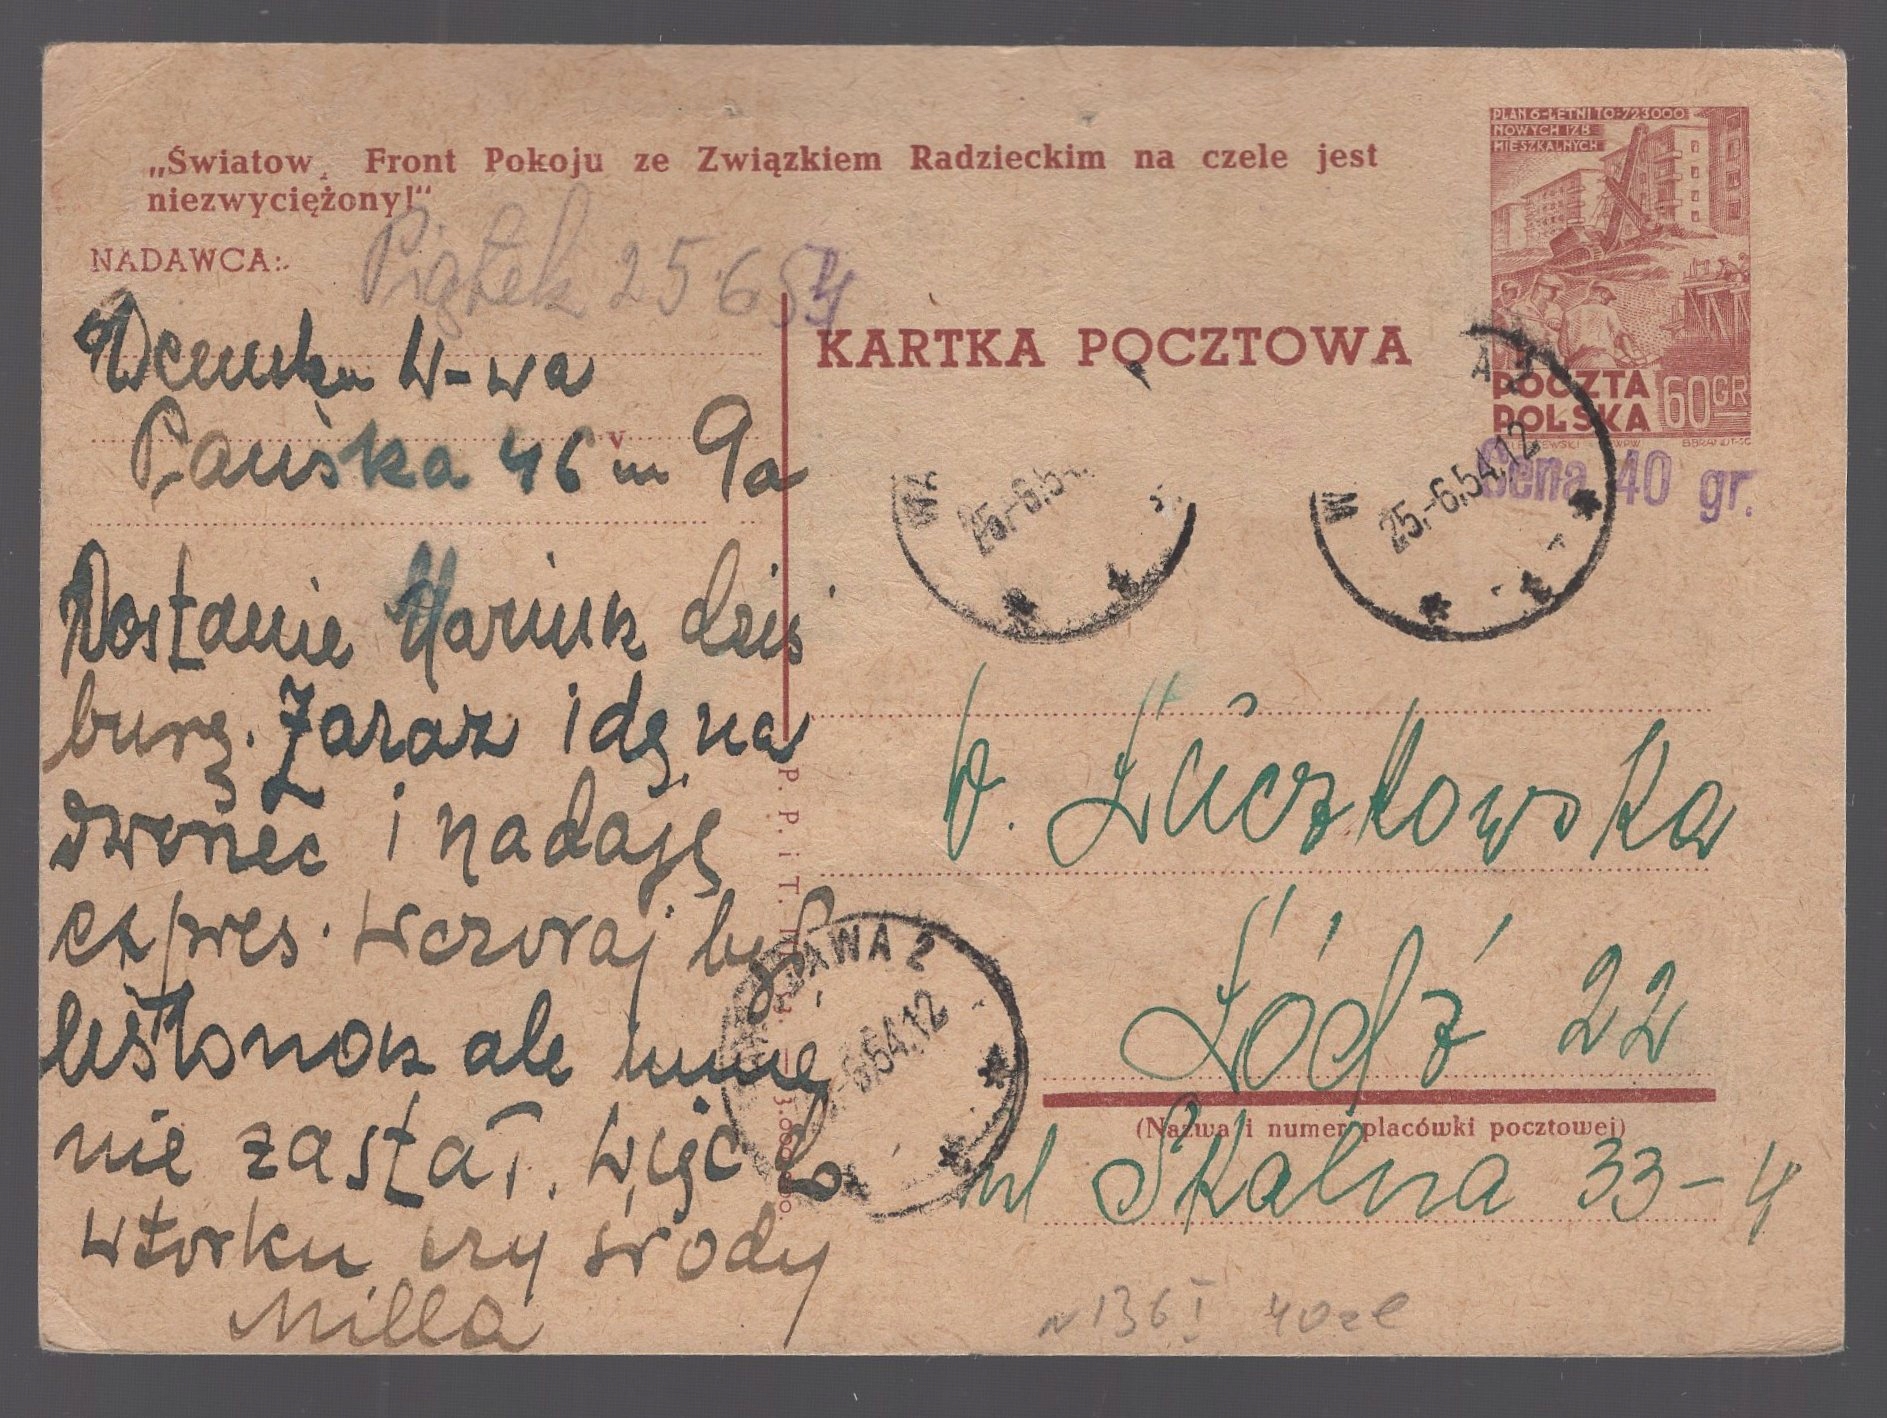 „Światow  Front Pokoju ze Związkiem Radzieckim na czele jest
niezwyciężony!“
NADAWCA:
Piątek 25.6 54
W-wa
Pańska 46 m 9a
Dostanie Mariuk dziś
burę. Zaraz idę na
dworzec i nadaję
express. Wczoraj był
listonosz ale mnie
nie zastał. Więc do
wtorku czy środy
Milla
PLAN 6-LETNI TO-723000
NOWYCH IZB
MIESZKALNYCH
POCZTA
POLSKA
60 GR
B.BRANDT-SC
Cena 40 gr.
KARTKA POCZTOWA
25.-6.54
25.-6.54.12
P. P. i T.
Łódź 22
(Nazwa i numer placówki pocztowej)
ul Skalna 33-4
WARSZAWA 2
-6.54.12
N 136 I 40zł